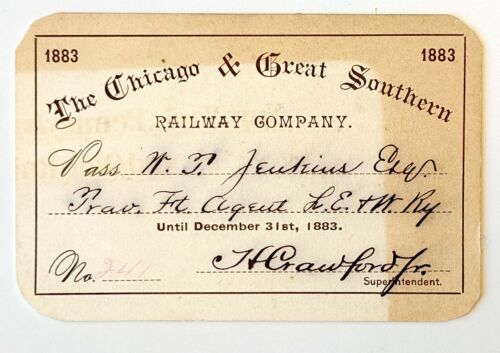 1883 1883
The Chicago & Great Southern
RAILWAY COMPANY.
Pass W. T. Jenkins Esq.
Trav. Ft. Agent L. E. & W. Ry
Until December 31st, 1883.
No. 241
H Crawford Jr.
Superintendent.